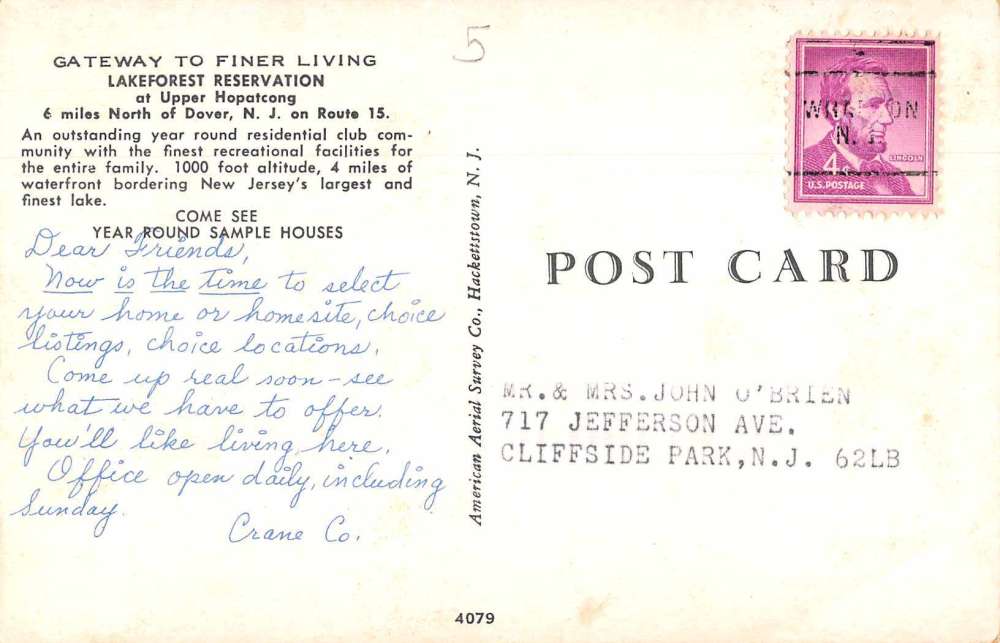 5
GATEWAY TO FINER LIVING
LAKEFOREST RESERVATION
at Upper Hopatcong
6 miles North of Dover, N. J. on Route 15.
An outstanding year round residential club com-
munity with the finest recreational facilities for
the entire family. 1000 foot altitude, 4 miles of
waterfront bordering New Jersey's largest and
finest lake.
COME SEE
YEAR ROUND SAMPLE HOUSES
Dear Friends,
Now is the time to select
your home or homesite, choice
listings, choice locations.
Come up real soon - see
what we have to offer.
You'll like living here.
Office open daily, including
Sunday.
Crane Co.
4079
American Aerial Survey Co., Hackettstown, N. J.
N. J.
LINCOLN
4¢
U.S. POSTAGE
POST CARD
MR.& MRS.JOHN O'BRIEN
717 JEFFERSON AVE.
CLIFFSIDE PARK,N.J. 62LB